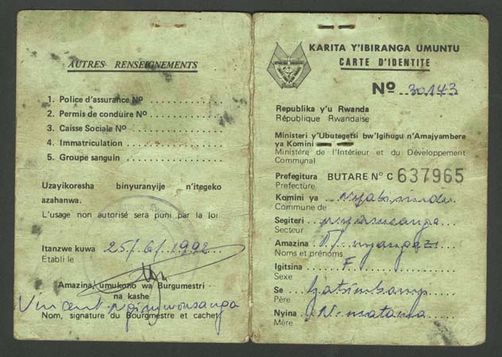 AUTRES RENSEIGNEMENTS
1. Police d'assurance Nº
2. Permis de conduire Nº
3. Caisse Sociale Nº
4. Immatriculation
5. Groupe sanguin
Uzayikoresha binyuranyije n'itegeko
azahanwa.
L'usage non autorisé sera puni par la loi
Itanzwe kuwa 25/6/1992
Etabli le
Amazina, umukono wa Burgumestri
na kashe
Vincent
Nom, signature du Bourgmestre et cachet
KARITA Y'IBIRANGA UMUNTU
CARTE D'IDENTITE
Nº 30.143
Republika y'u Rwanda
République Rwandaise
Ministeri y'Ubutegetsi bw'Igihugu n'Amajyambere
ya Komini
Ministère de l'Intérieur et du Développement
Communal
Prefegitura BUTARE Nº C 637965
Préfecture
Komini ya
Commune de
Segiteri
Secteur
Amazina
Noms et prénoms
Igitsina F
Sexe
Se
Père
Nyina
Mère